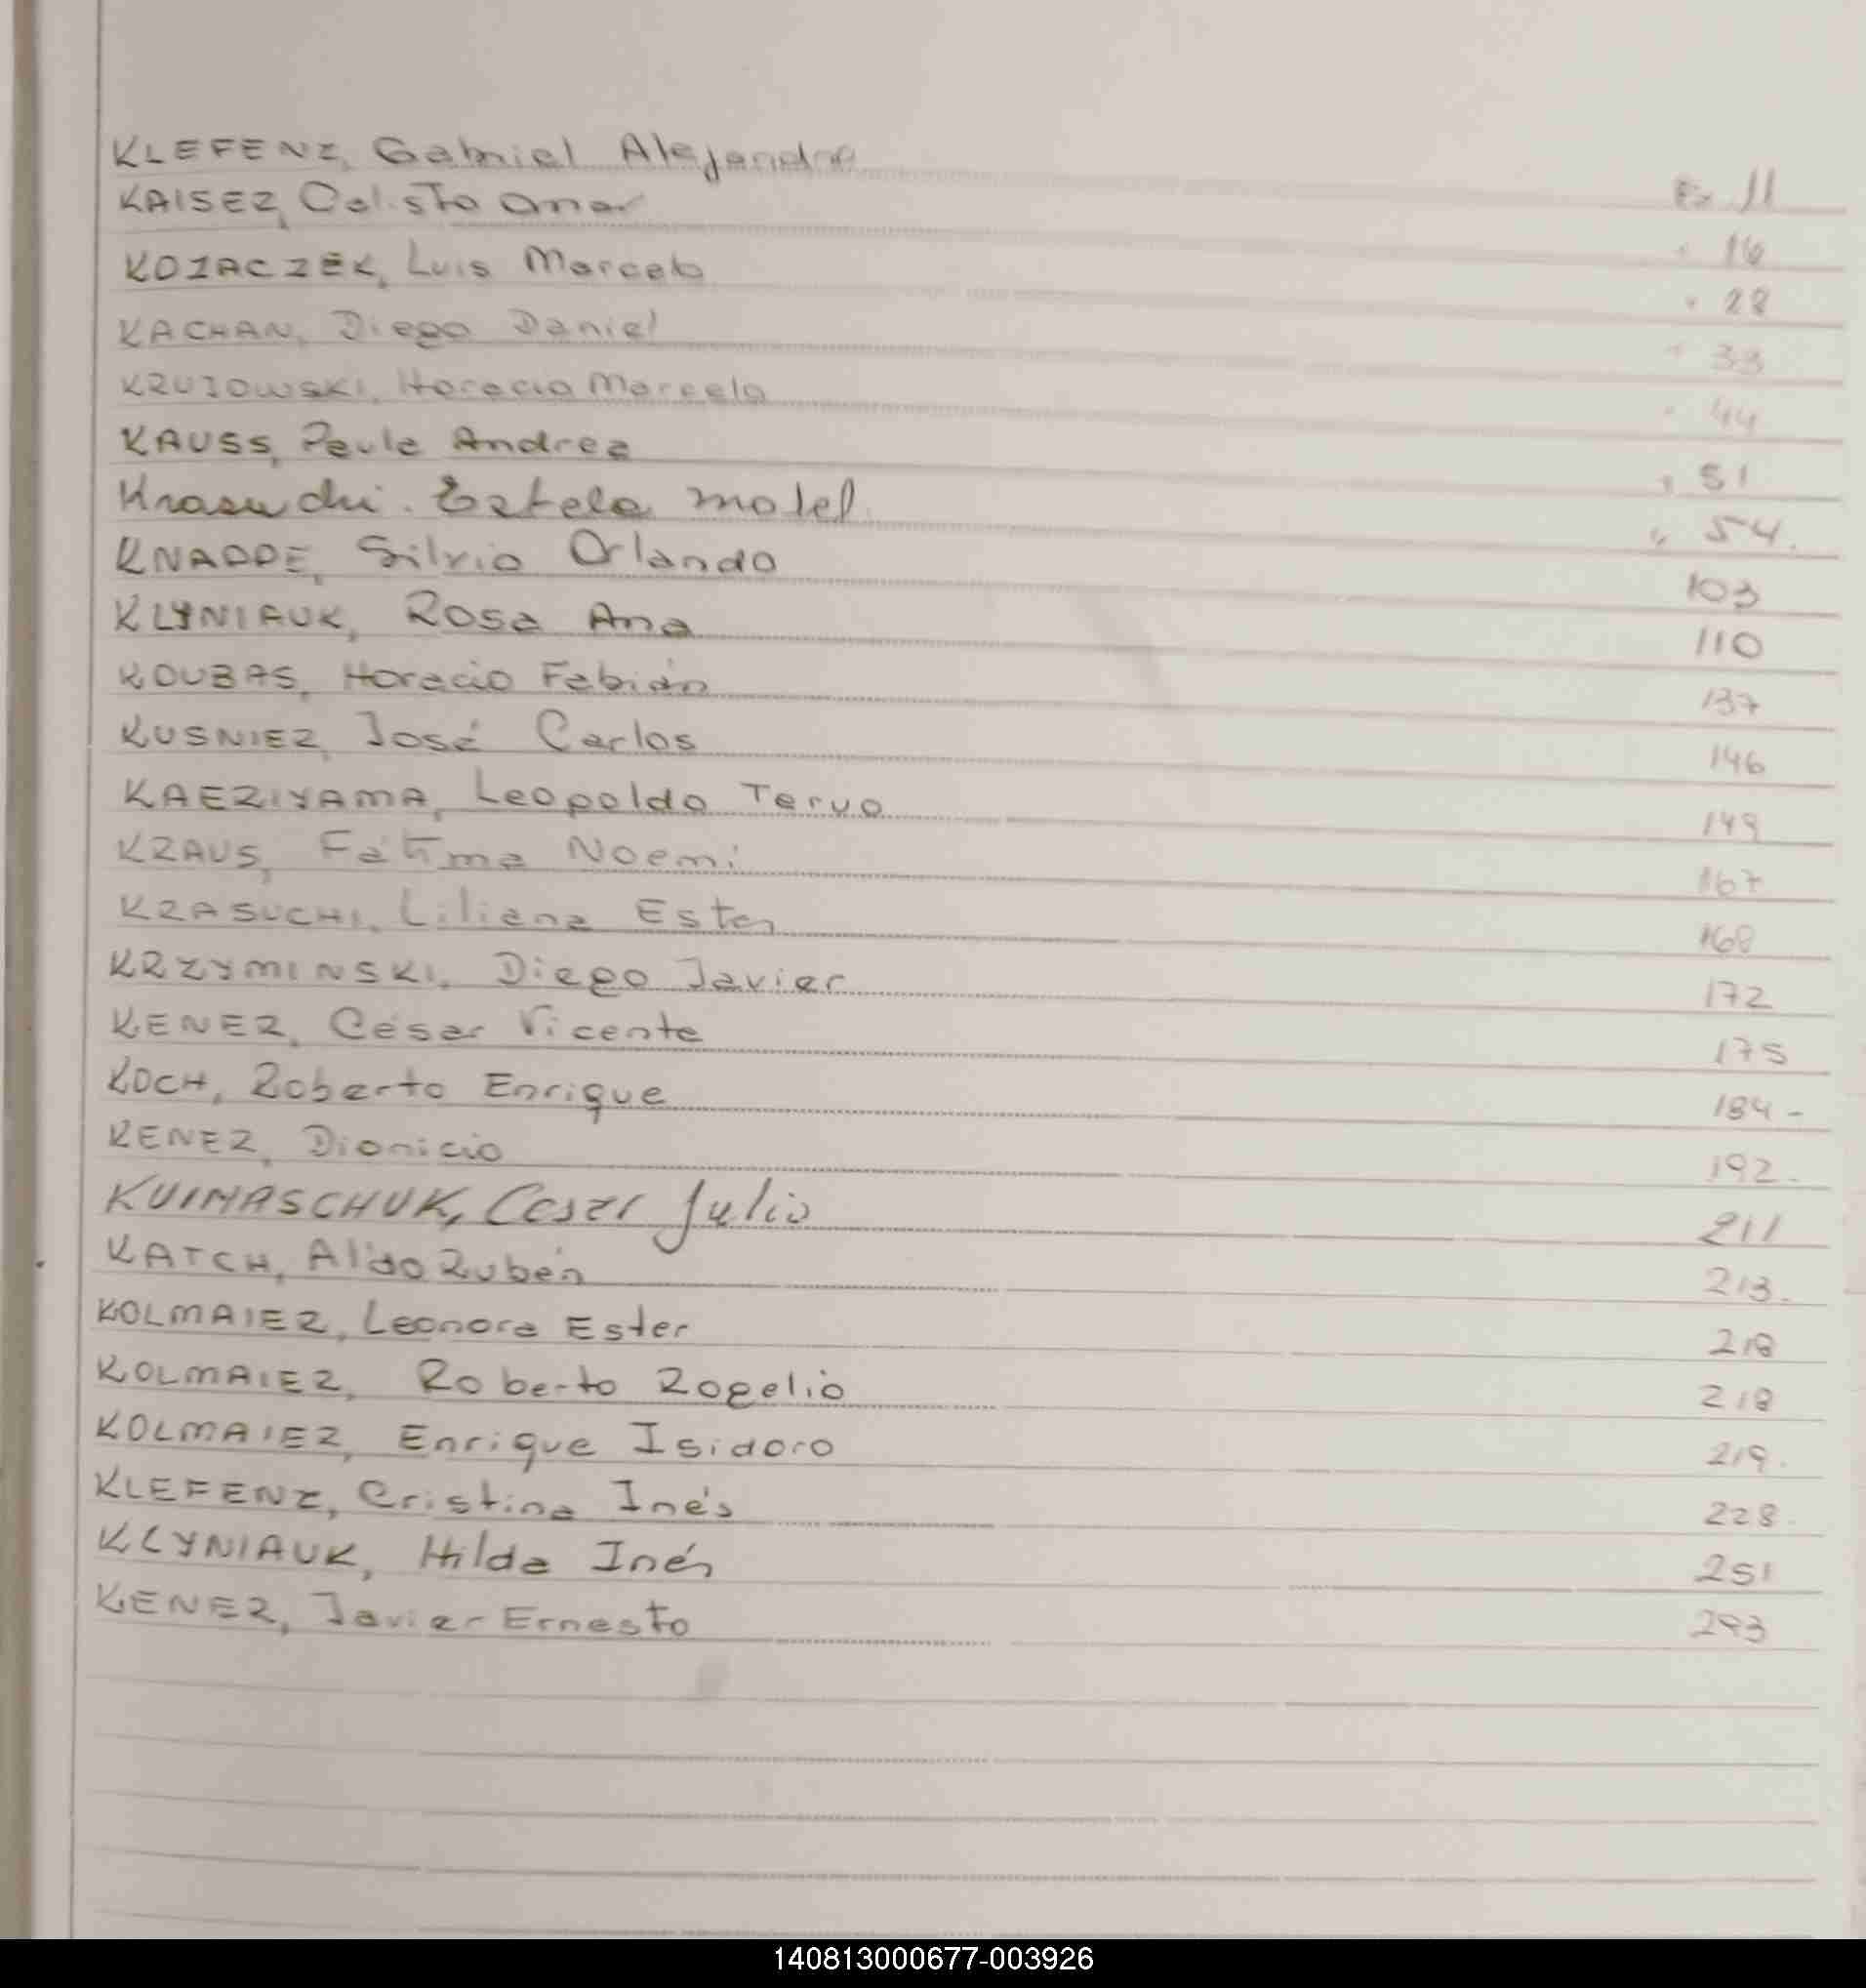 KLEFENZ, Gabriel Alejandro Ex 11
KAISER, Calisto Omar " 16
KOZACZEK, Luis Marcelo " 28
KACHAN, Diego Daniel " 33
KRUJOWSKI, Horacio Marcelo " 44
KAUSS, Paula Andrea " 51
Krasuchi. Estela Mabel " 54.
KNAPPE, Silvio Orlando 103
KLYNIAUK, Rosa Ana 110
KOUBAS, Horacio Fabián 137
KUSNIER, José Carlos 146
KAERIYAMA, Leopoldo Teruo 149
KRAUS, Fátima Noemi 167
KRASUCHI, Liliana Ester 168
KRZYMINSKI, Diego Javier 172
KENER, César Vicente 175
KOCH, Roberto Enrique 184-
KENER, Dionicio 192.
KUIMASCHUK, Cesar Julio 211
KATCH, Aldo Rubén 213.
KOLMAIER, Leonora Ester 218
KOLMAIER, Roberto Rogelio 218
KOLMAIER, Enrique Isidoro 219.
KLEFENZ, Cristina Inés 228.
KLYNIAUK, Hilda Inés 251
KENER, Javier Ernesto 293
140813000677-003926